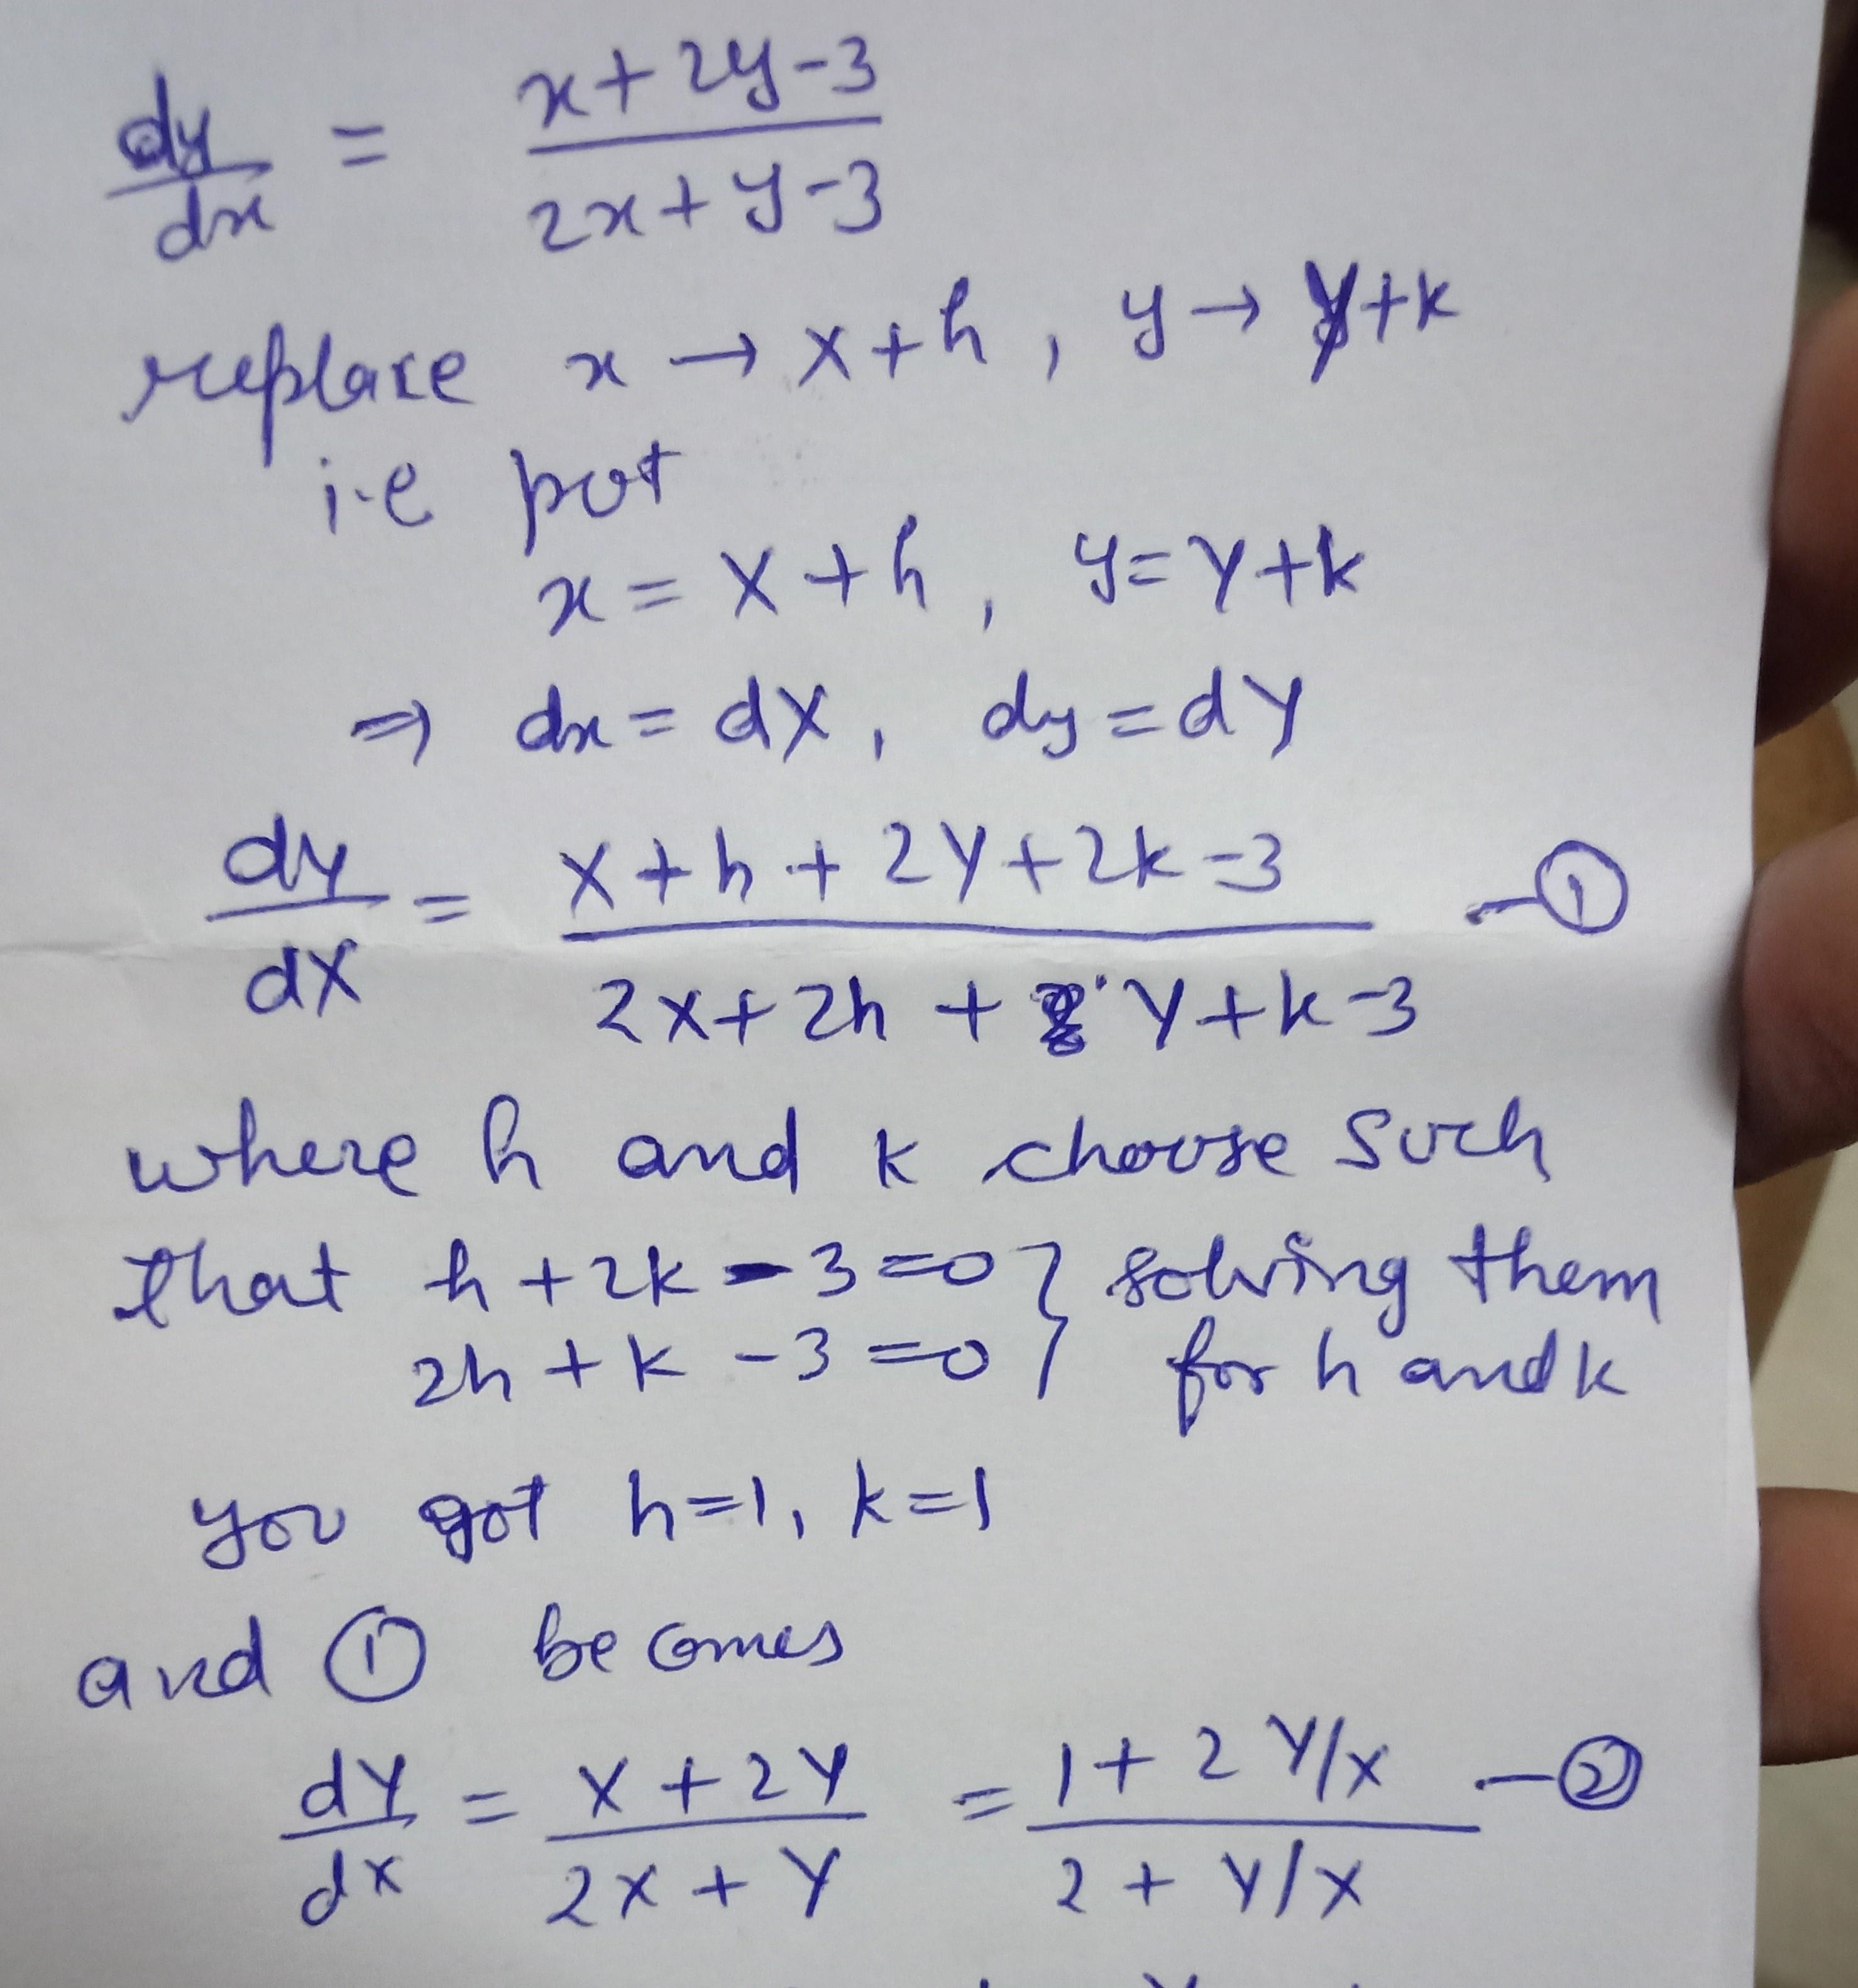 dy/dx = (x+2y-3)/(2x+y-3)
replace x → X+h, y → Y+k
i.e put
x = X+h, y=Y+k
⇒ dx = dX, dy = dY
dy/dX = (X+h+2Y+2k-3)/(2X+2h+Y+k-3) —①
where h and k choose such
that h+2k-3=0 } solving them
2h+k-3=0 } for h and k
you got h=1, k=1
and ① becomes
dY/dX = (X+2Y)/(2X+Y) = (1+2Y/X)/(2+Y/X) —②